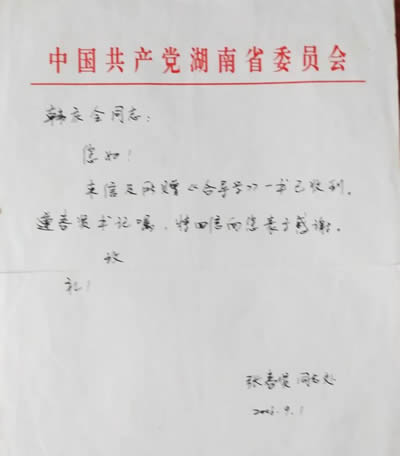 中国共产党湖南省委员会
韩庆全同志：
您好！
来信及所赠《合导学》一书已收到。
遵春贤书记嘱，特回信向您表示感谢。
致
礼！
张春贤同志处
2006.9.1